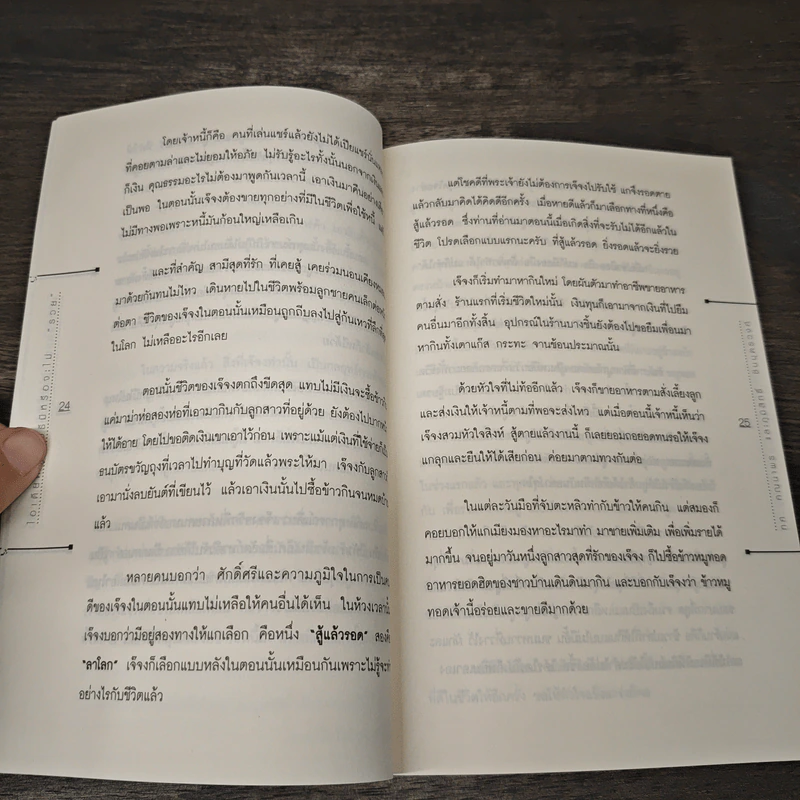 โดยเจ้าหนี้ก็คือ คนที่เล่นแชร์แล้วยังไม่ได้เปียแชร์
ที่คอยตามล่าและไม่ยอมให้อภัย ไม่รับรู้อะไรทั้งนั้นนอกจาก
ก็เงิน คุณธรรมอะไรไม่ต้องมาพูดกันเวลานี้ เอาเงินมาคืนอย่าง
เป็นพอ ในตอนนั้นเจ๊จงต้องขายทุกอย่างที่มีในชีวิตเพื่อใช้หนี้
ไม่มีทางพอเพราะหนี้มันก้อนใหญ่เหลือเกิน
และที่สำคัญ สามีสุดที่รัก ที่เคยสู้ เคยร่วมนอนเคียง
มาด้วยกันทนไม่ไหว เดินหายไปในชีวิตพร้อมลูกชายคนเล็ก
ต่อตา ชีวิตของเจ๊จงในตอนนั้นเหมือนถูกถีบลงไปสู่ก้นเหวที่ลึก
ในโลก ไม่เหลืออะไรอีกเลย
ตอนนั้นชีวิตของเจ๊จงตกถึงขีดสุด แทบไม่มีเงินจะซื้อข้าว
แค่มาม่าห่อสองห่อที่เอามากินกับลูกสาวที่อยู่ด้วย ยังต้องไป
ให้ได้อาย โดยไปขอติดเงินเขาเอาไว้ก่อน เพราะแม้แต่เงินที่ใช้จ่าย
ธนบัตรขวัญถุงที่เวลาไปทำบุญที่วัดแล้วพระให้มา เจ๊จงกับลูกสาว
เอามานั่งลบยันต์ที่เขียนไว้ แล้วเอาเงินนั้นไปซื้อข้าวกินจนหมด
แล้ว
หลายคนบอกว่า ศักดิ์ศรีและความภูมิใจในการเป็น
ดีของเจ๊จงในตอนนั้นแทบไม่เหลือให้คนอื่นได้เห็น ในห้วงเวลา
เจ๊จงบอกว่ามีอยู่สองทางให้แกเลือก คือหนึ่ง "สู้แล้วรอด" สอง
"ลาโลก" เจ๊จงก็เลือกแบบหลังในตอนนั้นเหมือนกันเพราะไม่รู้จะ
อย่างไรกับชีวิตแล้ว
24
แต่โชคดีที่พระเจ้ายังไม่ต้องการเจ๊จงไปรับใช้ แกจึงรอดตาย
แล้วกลับมาคิดได้คิดดีอีกครั้ง เมื่อหายดีแล้วก็มาเลือกทางที่หนึ่งคือ
สู้แล้วรอด ซึ่งท่านที่อ่านมาตอนนี้เมื่อเกิดสิ่งที่จะรับไม่ได้อีกแล้วใน
ชีวิต โปรดเลือกแบบแรกนะครับ ที่สู้แล้วรอด ยิ่งรอดแล้วจะยิ่งรวย
เจ๊จงก็เริ่มทำมาหากินใหม่ โดยผันตัวมาทำอาชีพขายอาหาร
ตามสั่ง ร้านแรกที่เริ่มชีวิตใหม่นั้น เงินทุนก็เอามาจากเงินที่ไปยืม
คนอื่นมาอีกทั้งสิ้น อุปกรณ์ในร้านบางชิ้นยังต้องไปขอยืมเพื่อนมา
หากินทั้งเตาแก๊ส กระทะ จานช้อนประมาณนั้น
ด้วยหัวใจที่ไม่ท้ออีกแล้ว เจ๊จงก็ขายอาหารตามสั่งเลี้ยงลูก
และส่งเงินให้เจ้าหนี้ตามที่พอจะส่งไหว แต่เมื่อตอนนี้เจ้าหนี้เห็นว่า
เจ๊จงสวมหัวใจสิงห์ สู้ตายแล้วงานนี้ ก็เลยยอมถอยอดทนรอให้เจ๊จง
แกลุกและยืนให้ได้เสียก่อน ค่อยมาตามทวงกันต่อ
ในแต่ละวันมือที่จับตะหลิวทำกับข้าวให้คนกิน แต่สมองก็
คอยบอกให้แกเมียงมองหาอะไรมาทำ มาขายเพิ่มเติม เพื่อเพิ่มรายได้
มากขึ้น จนอยู่มาวันหนึ่งลูกสาวสุดที่รักของเจ๊จง ก็ไปซื้อข้าวหมูทอด
อาหารยอดฮิตของชาวบ้านเดินดินมากิน และบอกกับเจ๊จงว่า ข้าวหมู
ทอดเจ้านี้อร่อยและขายดีมากด้วย
25